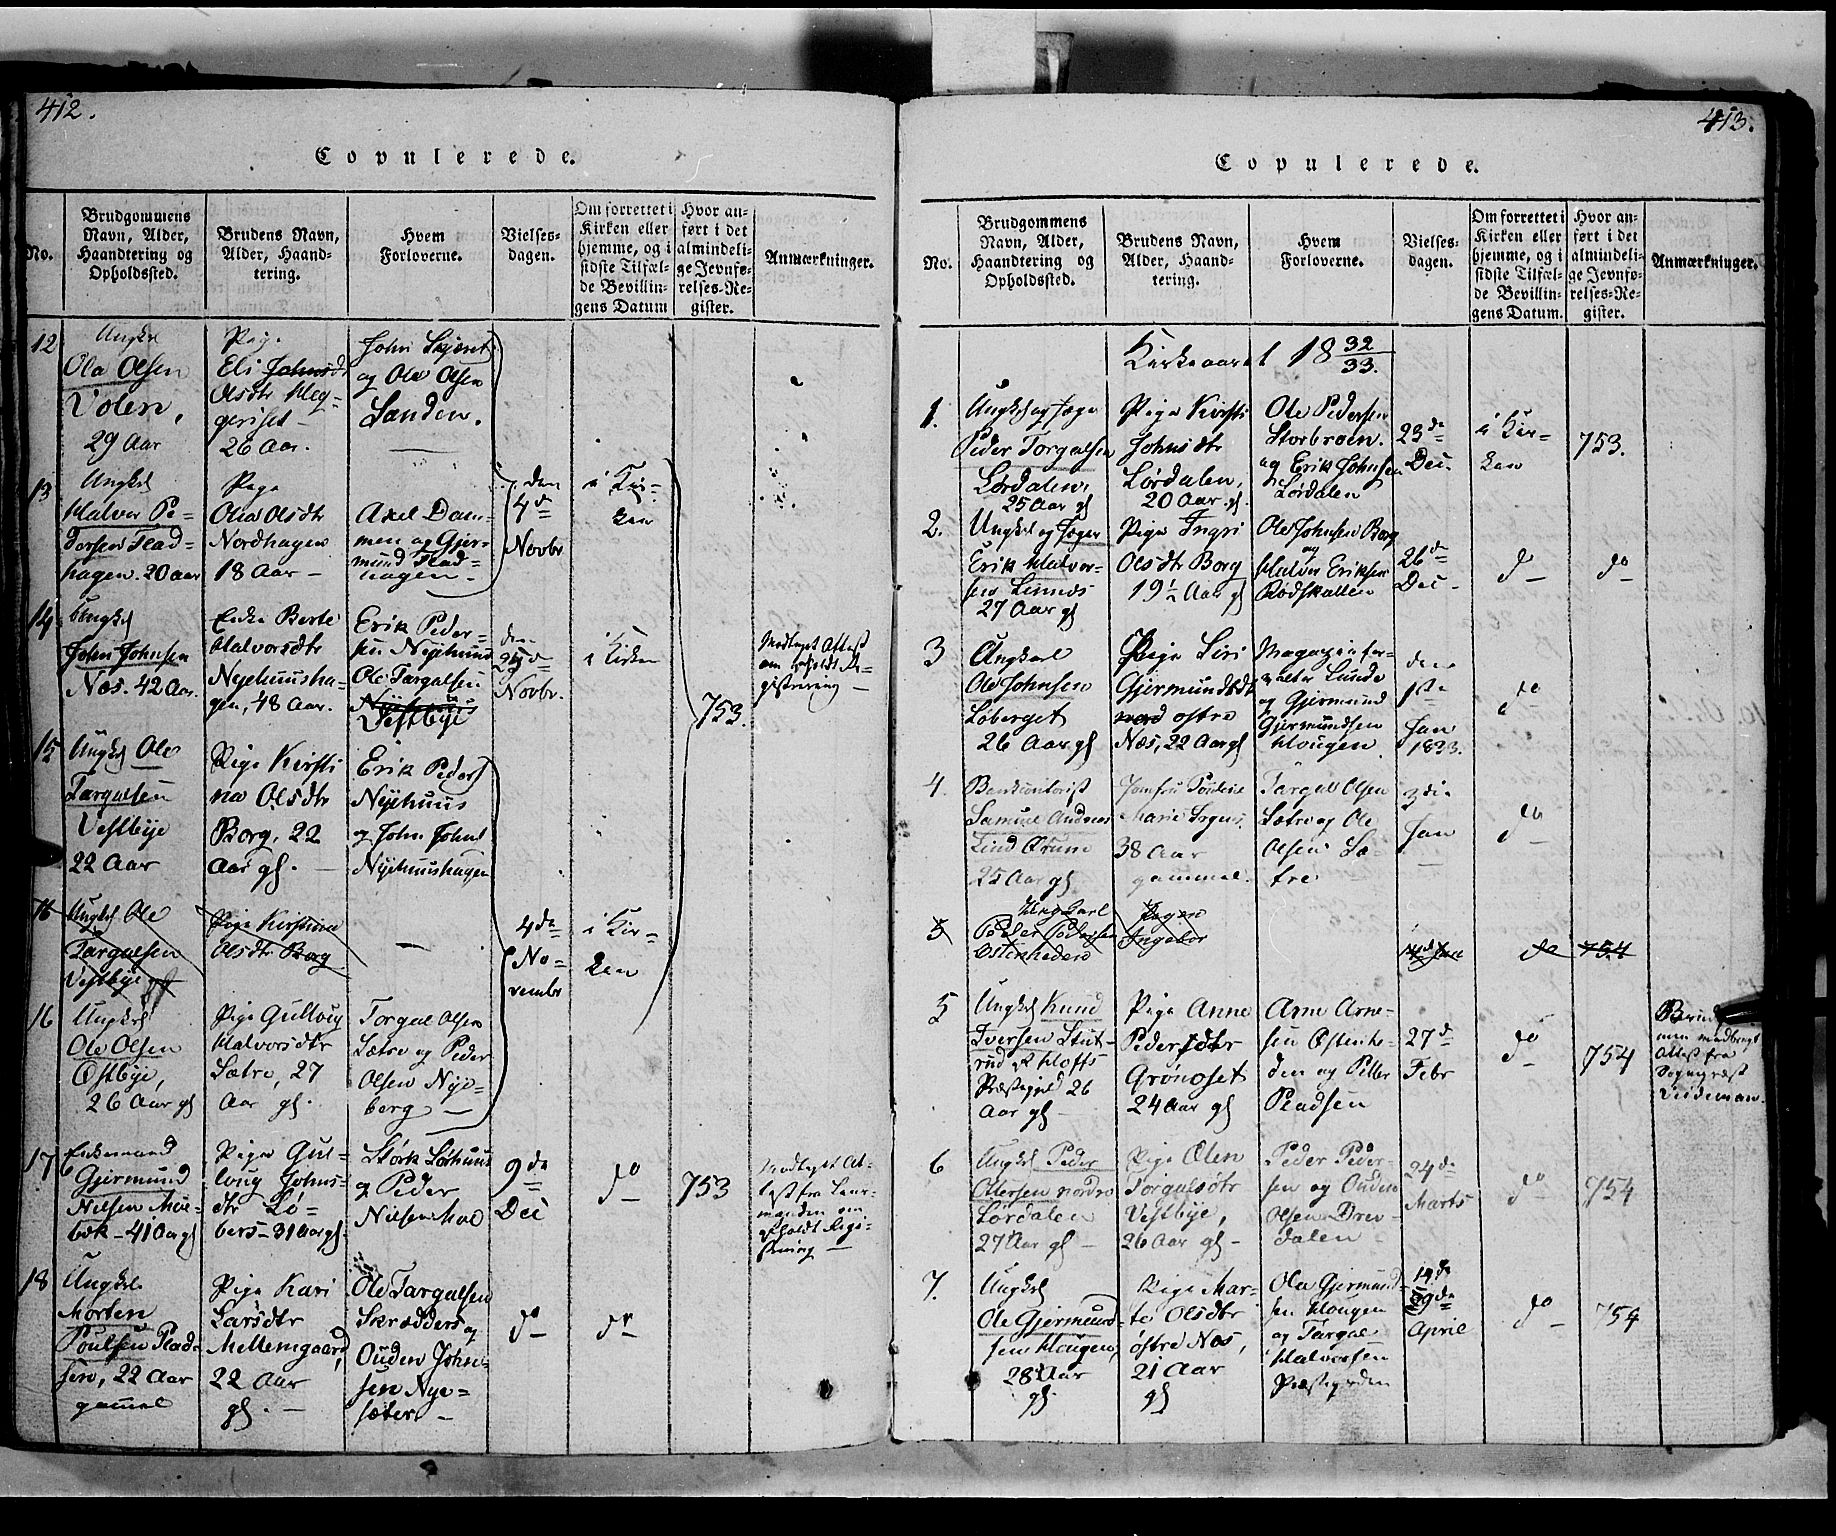 412.
Copulerede.
No.
Brudgommens
Navn, Alder,
Haandtering og
Opholdssted.
Brudens Navn,
Alder, Haand-
tering.
Hvem
Forloverne.
Vielses-
dagen.
Om forrettet i
Kirken eller
hjemme, og i
sidste Tilfæl-
de Bevillin-
gens Datum
Hvor an-
ført i det
almindeli-
ge Jevnfø-
relses-Re-
gister.
Anmærkninger.
12
Ungkl
Ola Olsen
Volen,
29 Aar
Pige
Eli Johnsdt
Olsdtr Meg-
geriset
26 Aar.
John Skjæret
og Ole Olsen
Sanden.
13
Ungkl
Halvor Pe-
dersen Flad-
hagen. 20 aar
Pige
Olia Olsdtr
Nordhagen
18 Aar
Axel Dam-
men og Gjer-
mund Flad-
hagen.
den
4de
Novbr
i Kir-
ken
14
Ungkl
John Johnsen
Næs. 42 Aar.
Enke Berte
Halvorsdtr
Nyehuusha-
gen, 48 Aar.
Erik Peder-
sen Nyehuus
Ole Targalsen
Nyehuus
Vestbye
den
25de
Novbr.
i Kirken
753.
Medtaget Attest
om holdt Re-
gistrering
15
Ungkl Ole
Targalsen
Vestbye
22 Aar
Pige Kirsti
na Olsdtr
Borg, 22
Aar gl.
Erik Peders
Nyehuus
og John Johns
Nyehuushagen
16
Ungkl Ole
Targalsen
Vestbye gl
Pige Kirstina
Olsdtr Borg
4de
No-
vembr
i Kir-
ken
16
Ungkl
Ole Olsen
Østbye,
26 Aar gl
Pige Gulloug
Halvorsdtr
Sætre, 27
Aar gl.
Torgal Olsen
Sætre og Peder
Olsen Nye-
berg
17
Enkemand
Gjermund
Nilsen Moe-
bæk - 41 Aar gl
Pige Gul-
loug Johns-
dtr Lø-
bers - 31 Aar gl.
Størk Sørhuus
og Peder
Nilsen Moe
9de
Dec
do
753
Medtaget At-
test fra Lens-
manden om
afholdt Regi-
strering
18
Ungkl
Morten
Poulsen Plad-
sen, 22 Aar
gammel
Pige Kari
Larsdtr
Mellemgaard,
22 Aar
gl.
Ole Targalsen
Skrædders og
Ouden John-
sen Nye-
sæter
do
do
413.
Copulerede.
No.
Brudgommens
Navn, Alder,
Haandtering og
Opholdssted.
Brudens Navn,
Alder, Haand-
tering.
Hvem
Forloverne.
Vielses-
dagen.
Om forrettet i
Kirken eller
hjemme, og i
sidste Tilfæl-
de Bevillin-
gens Datum.
Hvor an-
ført i det
almindeli-
ge Jevnfø-
relses-Re-
gister.
Anmærkninger.
Kirkeaaret 18 32/33.
1.
Ungkl og Jæger
Peder Torgalsen
Lørdalen,
25 Aar gl
Pige Kirsti
Johnsdtr
Lørdalen,
20 Aar gl
Ole Pedersen
Storbroen.
og Erik Johnsen
Lørdalen
23de
Dec.
i Kir-
ken
753.
2.
Ungkl og Jæger
Erik Halvor-
sen Lunds
27 Aar gl
Pige Ingri
Olsdtr Borg
19½ Aar gl
Ole Johnsen Borg
og
Halvor Eriksen
Rødskallen
26de
Dec
do
do
3
Ungkarl
Ole Johnsen
Løberget
26 Aar gl
Pige Siri
Gjermundsdt
nord østre
Næs, 22 Aar gl
Magazinfor-
valter Lunde
og Gjermund
Gjermundsen
Hougen
den
1ste
Jan
1833.
do
4.
Samuel Andreas
Lind Ørum
25 Aar gl
Jomfru
Marie
38 Aar
gammel.
Targal Olsen
Sætre og Ole
Olsen Sæ-
tre
3die
Jan
do
5
Ungkarl
Peder Pedersen
Østenheden
Pigen
Ingebor
Jan
do
754
5
Ungkl Knud
Iversen Stut-
rud af Hoffs
Præstegjeld 26
Aar gl
Pige Anne
Pedersdtr
Grønoset
24 Aar gl
Arne Arne-
sen Østenhe-
den og Petter
Pladsen
27de
Febr
do
754
Brud
men medbragt
Attest fra
Sognepræst
6
Ungkl Peder
Ottersen nordre
Lørdalen
27 Aar gl
Pige Olen
Torgalsdtr
Vestbye,
26 Aar gl
Peder Peder-
sen og Ouden
Olsen Drev-
dalen
24de
Marts
do
754
7.
Ungkl
Ole Gjermund-
sen Hougen,
28 Aar
gl
Pige Mar-
te Olsdtr
østre Næs,
21 Aar
gl
Ola Gjermund-
sen Hougen
og Targal
Halvorsen
Præstegrden
14de
9de
April
do
754